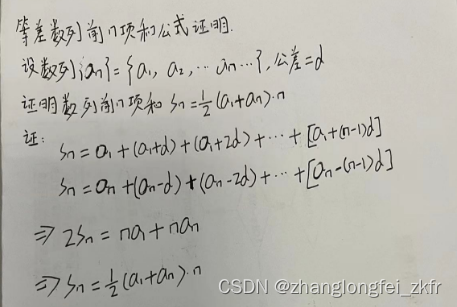 等差数列前n项和公式证明.
设数列{an}={a₁, a₂, ⋯ an ⋯}, 公差=d
证明数列前n项和 Sn=½(a₁+an)·n
证:
Sn=a₁+(a₁+d)+(a₁+2d)+⋯+[a₁+(n-1)d]
Sn=an+(an-d)+(an-2d)+⋯+[an-(n-1)d]
⇒ 2Sn=na₁+nan
⇒ Sn=½(a₁+an)·n
CSDN @zhanglongfei_zkfr